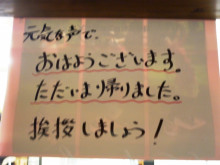 元気な声で、
おはようございます。
ただいま帰りました。
挨拶しましょう!